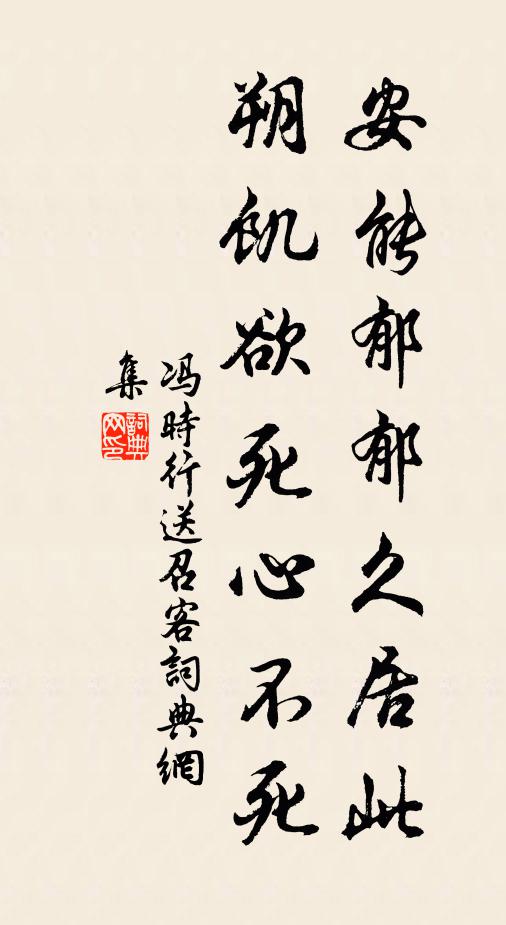 安能郁郁久居此
朔飢欲死心不死
冯時行送召客詞典網
集
詞典
网印